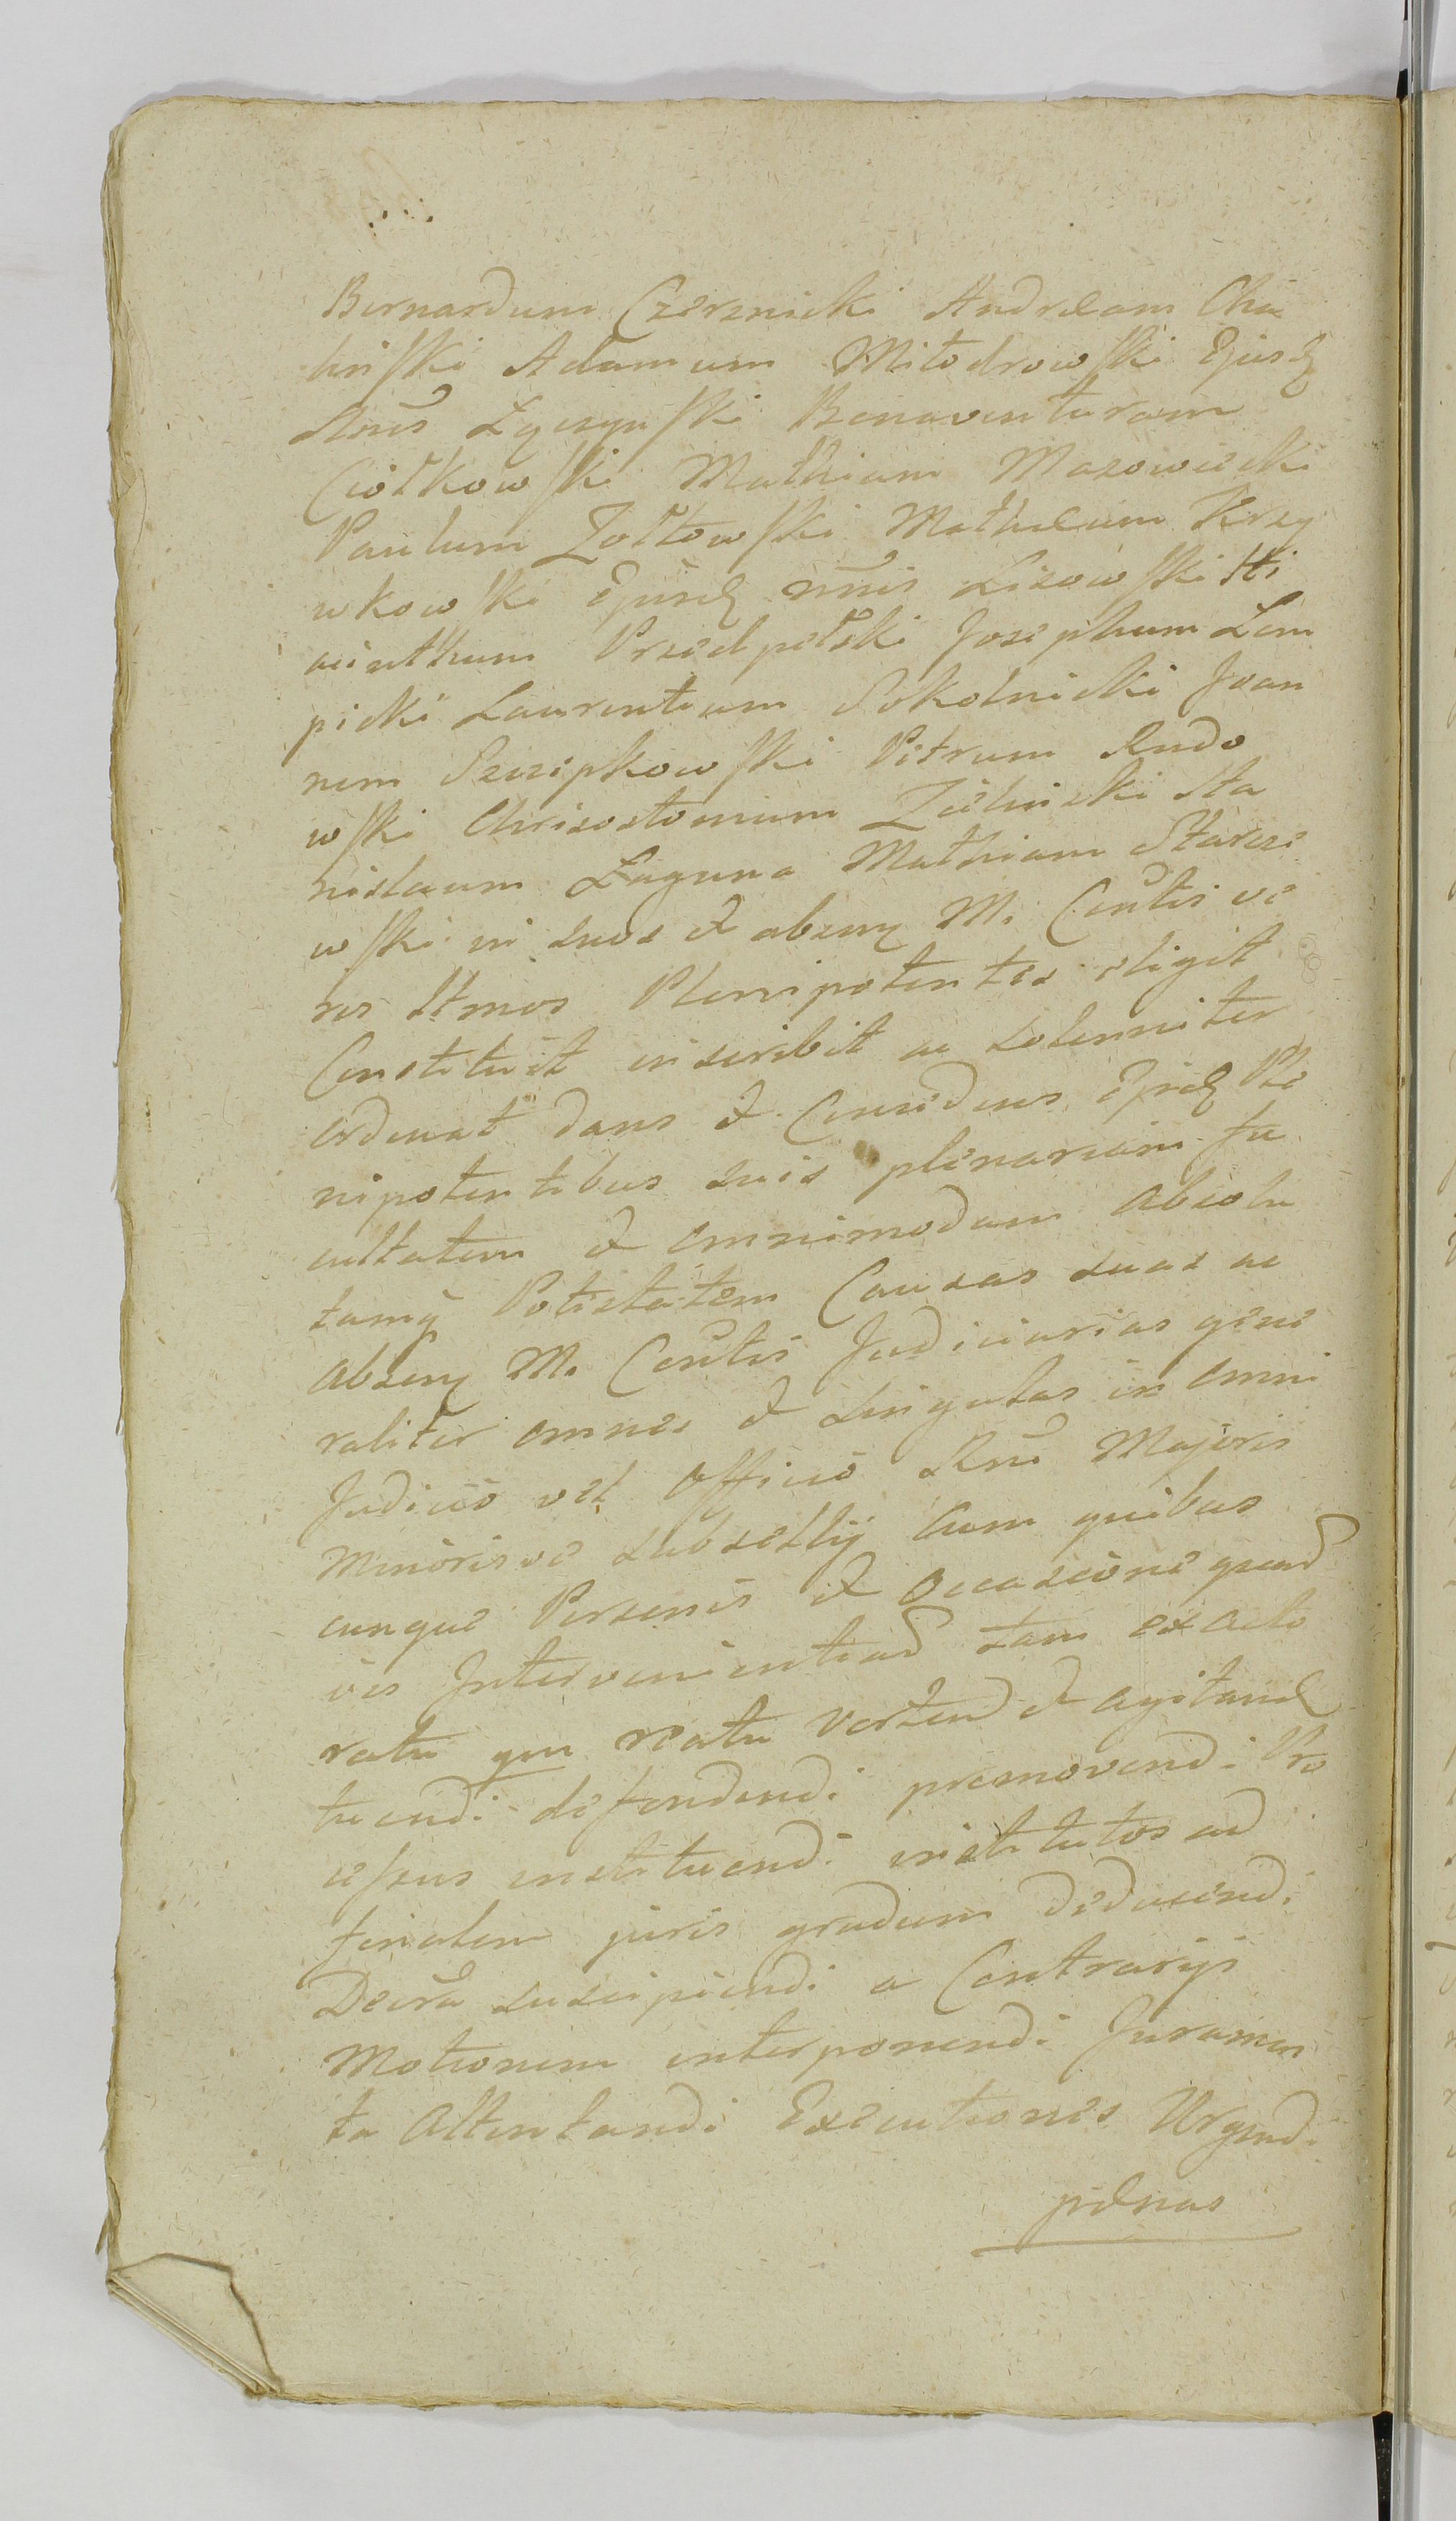 Bernardum Czerznicki Andream Chu
liński Adamum Miłodrowski Ejusd
Nnis Zyczyński Bonaventuram
Ciołkowski Mathiam Mazowiecki
Paulum Zołtowski Matheum Krzy
wkowski Ejusd nnis Lisowski Hi
acinthum Przedpełski Josephum Lem
picki Laurentium Sokolnicki Joan
nem Szczepkowski Petrum Rudo
wski Chrisostomum Zielnicki Sta
nislaum Laguna Mathiam Starcze
wski in suos et absenq M. Contis ve
ros Ltmos Plenipotentes eligit
Constituit inscribit ac solenniter
ordinat dans et Concedens Ejusd Ple
nipotentibus suis plenariam fa
cultatem et omnimodam absolu
tamq Potestatem Causas suas ac
absenq M. Contis Judiciarias gene
raliter omnes et singulas in omni
Judicio vel officio Rni Majoris
minorisve subsellij cum quibus
cunque Personis et occasione quad
vis Intervenientiad tam ex acto
ratu qm reatu Vertend et agitand
tuendi defendendi promovendi Pro
cessus instituendi institutos ad
finalem juris gradum deducendi
Decra suscipiendi a Contrarijs
Motionem interponendi Juramen
ta Attentandi Executiones Urgendi
pænas